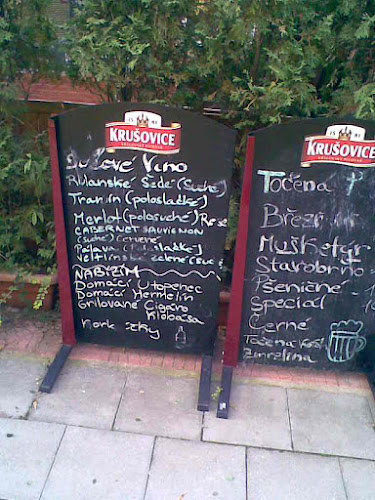 KRUŠOVICE
Víno
Rulanské Šedé (suché)
Tramín (polosladké)
Merlot (polosuché) Rosé
CABERNET SAUVIGNON
(suché) červené
Palava (polosladké)
Veltlínské zelené (suché
NABÍZÍM
Domácí Utopenec
Domácí Hermelín
Grilované Cigáro
Klobása
KRUŠOVICE
Točená
Březňák
Mušketýr
Starobrno
Pšeničné
Speciál
Černé
Točená Kofola
Zmrzlina